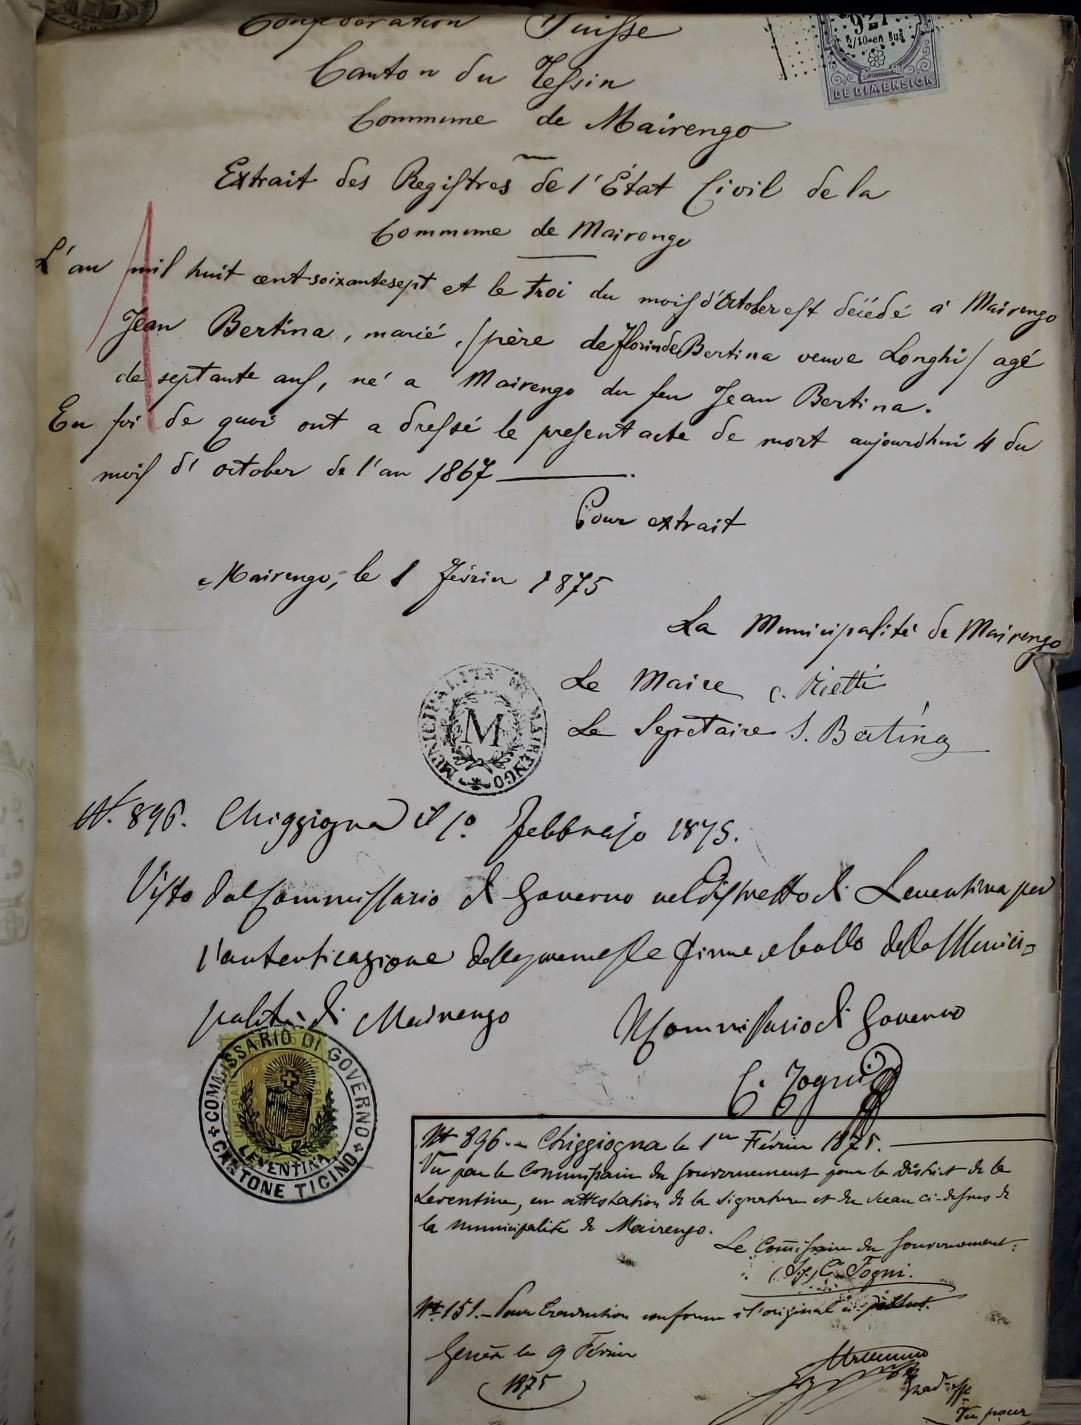 Confédération Suisse
Canton du Tessin
Commune de Mairengo
Extrait des Registres de l'État Civil de la
Commune de Mairengo
L'an mil huit cent soixantesept et le troi du mois d'October est décédé a Mairengo
Jean Bertina, marié, (père de Florinde Bertina veuve Longhi) agé
de septante ans, né a Mairengo du feu Jean Bertina.
En foi de quoi ont a dressé le present acte de mort aujourdhui 4 du
mois d'october de l'an 1867
Pour extrait
Mairengo, le 1 Févrin 1875
La Municipalité de Mairengo
Le Maire C. Pietti
Le Segretaire S. Bertina
MUNICIPALITA DI MAIRENGO
M
N. 896. Chiggiogna il 1o Febbrajo 1875.
Visto dal Commissario di Governo nel Distretto di Leventina per
l'autenticazione delle premesse firme e bollo della Munici=
palità di Mairengo
Il Commissario di Governo
C. Togni
COMMISSARIO DI GOVERNO
LEVENTINA
CANTONE TICINO
DE DIMENSION
No 896. - Chiggiogna le 1er Février 1875.
Vu par le Commissaire du Gouvernement pour le District de la
Leventine, en attestation de la signature et du sceau ci-dessus de
la municipalité de Mairengo.
Le Commissaire du Gouvernement:
(Sig) C. Togni.
No 151. - Pour traduction conforme à l'original ci-dessus.
Genève le 9 Février
1875
Vu pour